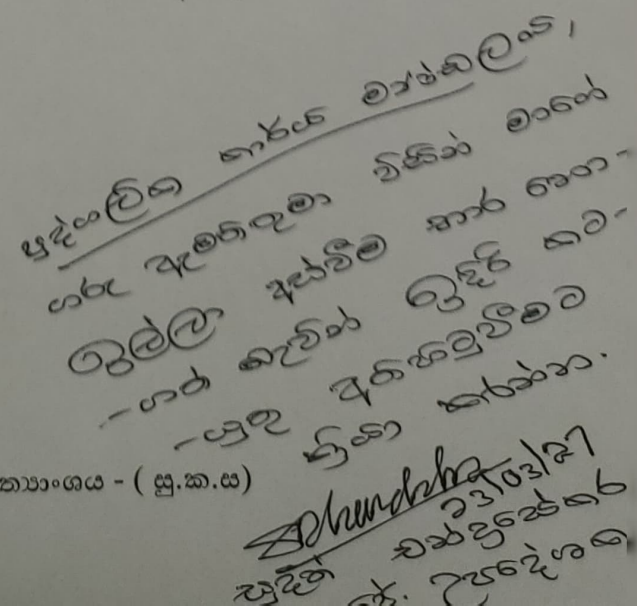 පුද්ගලික කාර්ය මණ්ඩලය,
ගරු ඇමතිතුමා විසින් මාගේ
ඉල්ලා අස්වීම භාර නො-
-ගත් බැවින් ඉදිරි කට-
-යුතු අත්හිටුවීමට
ක්‍රියා කරන්න.
ත්‍යාංශය - ( සු.ක.ස)
23/03/27
සුදත් චන්ද්‍රසේකර
උපදේශක